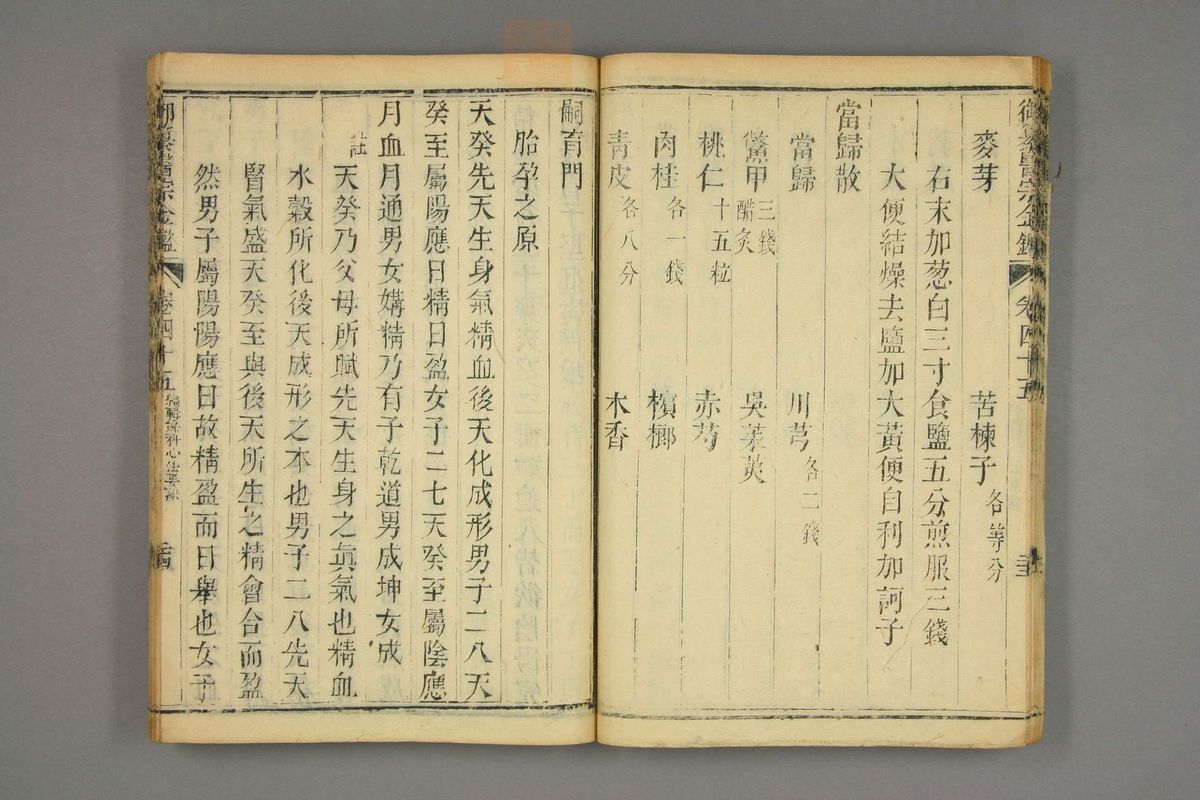 御纂醫宗金鑑 卷四十五
麥芽 苦楝子各等分
右末加葱白三寸食鹽五分煎服三錢
大便結燥去鹽加大黃便自利加訶子
當歸散
當歸 川芎各二錢
鱉甲三錢醋炙 吳茱萸
桃仁十五粒 赤芍
肉桂各一錢 檳榔
青皮各八分 木香
嗣育門
胎孕之原
天癸先天生身氣精血後天化成形男子二八天
癸至屬陽應日精日盈女子二七天癸至屬陰應
月血月通男女媾精乃有子乾道男成坤女成
註天癸乃父母所賦先天生身之真氣也精血
水穀所化後天成形之本也男子二八先天
腎氣盛天癸至與後天所生之精會合而盈
然男子屬陽陽應日故精盈而日舉也女子
御纂醫宗金鑑 卷四十五 編輯婦科心法要訣